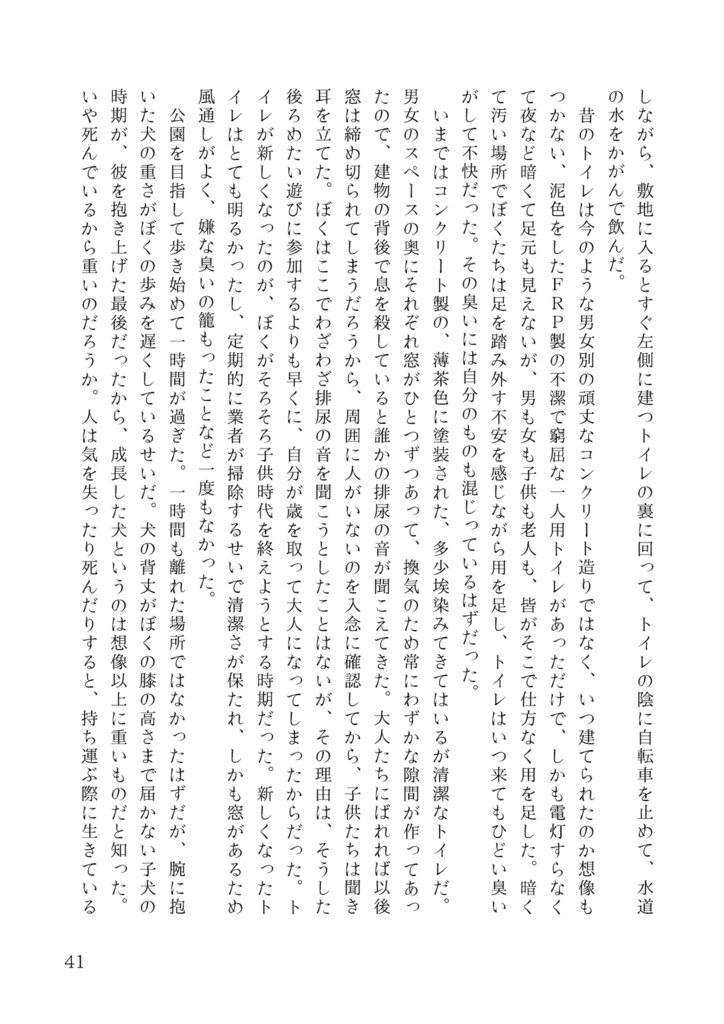 しながら、敷地に入るとすぐ左側に建つトイレの裏に回って、トイレの陰に自転車を止めて、水道
の水をかがんで飲んだ。
　昔のトイレは今のような男女別の頑丈なコンクリート造りではなく、いつ建てられたのか想像も
つかない、泥色をしたＦＲＰ製の不潔で窮屈な一人用トイレがあっただけで、しかも電灯すらなく
て夜など暗くて足元も見えないが、男も女も子供も老人も、皆がそこで仕方なく用を足した。暗く
て汚い場所でぼくたちは足を踏み外す不安を感じながら用を足し、トイレはいつ来てもひどい臭い
がして不快だった。その臭いには自分のものも混じっているはずだった。
　いまではコンクリート製の、薄茶色に塗装された、多少埃染みてきてはいるが清潔なトイレだ。
男女のスペースの奥にそれぞれ窓がひとつずつあって、換気のため常にわずかな隙間が作ってあっ
たので、建物の背後で息を殺していると誰かの排尿の音が聞こえてきた。大人たちにばれれば以後
窓は締め切られてしまうだろうから、周囲に人がいないのを入念に確認してから、子供たちは聞き
耳を立てた。ぼくはここでわざわざ排尿の音を聞こうとしたことはないが、その理由は、そうした
後ろめたい遊びに参加するよりも早くに、自分が歳を取って大人になってしまったからだった。ト
イレが新しくなったのが、ぼくがそろそろ子供時代を終えようとする時期だった。新しくなったト
イレはとても明るかったし、定期的に業者が掃除するせいで清潔さが保たれ、しかも窓があるため
風通しがよく、嫌な臭いの籠もったことなど一度もなかった。
　公園を目指して歩き始めて一時間が過ぎた。一時間も離れた場所ではなかったはずだが、腕に抱
いた犬の重さがぼくの歩みを遅くしているせいだ。犬の背丈がぼくの膝の高さまで届かない子犬の
時期が、彼を抱き上げた最後だったから、成長した犬というのは想像以上に重いものだと知った。
いや死んでいるから重いのだろうか。人は気を失ったり死んだりすると、持ち運ぶ際に生きている
41